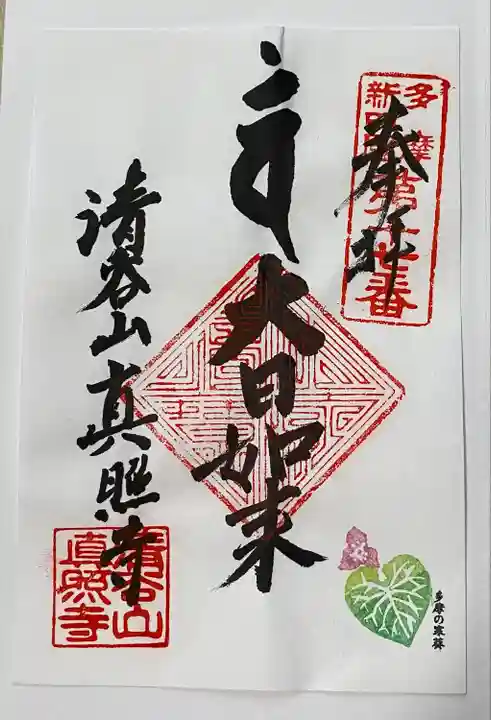 多摩
新四国
奉拝
大日如来
清谷山真照寺
清谷山
真照寺
多摩の寒葵